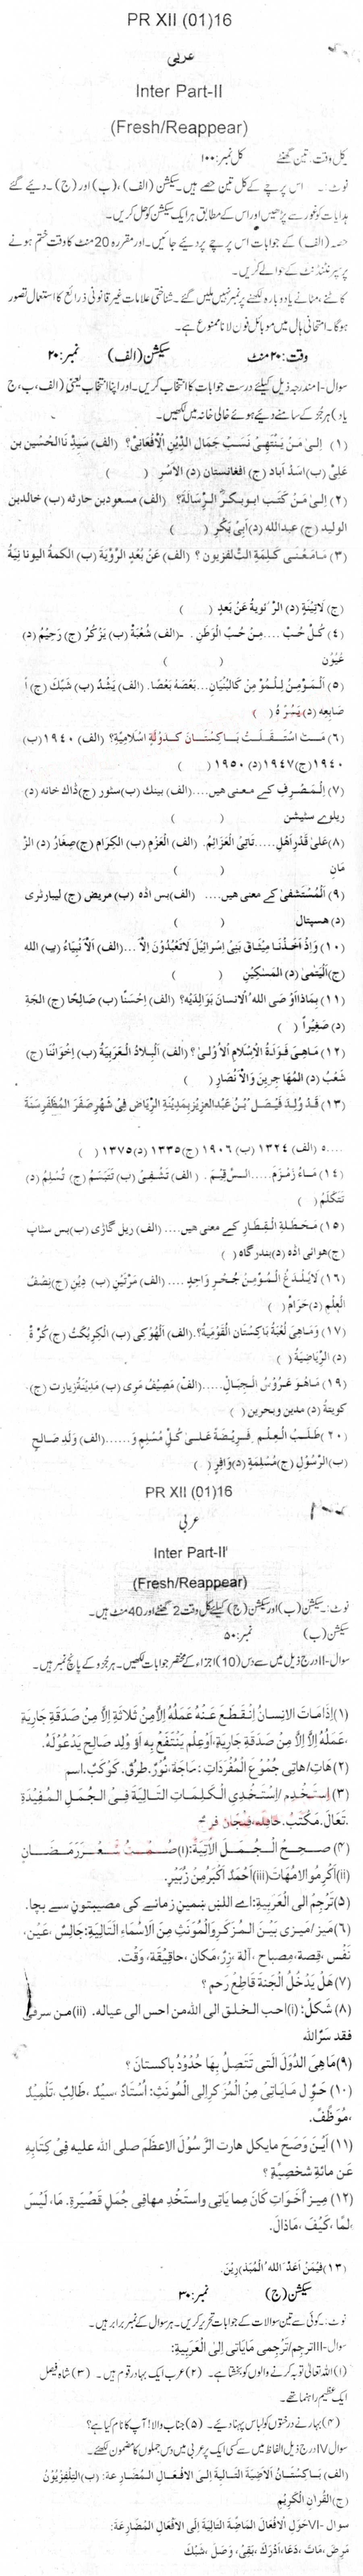 PR XII (01)16
عربی
Inter Part-II
(Fresh/Reappear)
کل وقت: تین گھنٹے کل نمبر: ۱۰۰
نوٹ:۔ اس پرچے کے کل تین حصے ہیں۔ سیکشن (الف)، (ب) اور (ج)۔ دیئے گئے
ہدایات کو غور سے پڑھیں اور اس کے مطابق ہر ایک سیکشن کو حل کریں۔
حصہ (الف) کے جوابات اس پرچے پر دیئے جائیں۔ اور مقررہ 20 منٹ کا وقت ختم ہونے
پر سپرنٹنڈنٹ کے حوالے کریں۔
کاٹنے، مٹانے یا دوبارہ لکھنے پر نمبر نہیں ملیں گے۔ شناختی علامات غیر قانونی ذرائع کا استعمال تصور
ہوگا۔ امتحانی ہال میں موبائل فون لانا ممنوع ہے۔
وقت: ۲۰ منٹ سیکشن (الف) نمبر: ۲۰
سوال-I مندرجہ ذیل کیلئے درست جوابات کا انتخاب کریں۔ اور اپنا انتخاب یعنی (الف، ب، ج
یا د) ہر جُز کے سامنے دیئے ہوئے خالی خانہ میں لکھیں۔
(۱) إلیٰ مَنْ يَنْتَهِیْ نَسَبُ جَمَالِ الدِّيْنِ الْأَفْغَانِیْ؟ (الف) سَيِّدِ نَا الحُسَيْن بن
عَلِیْ (ب) اسَدُ اٰباد (ج) افغانستان (د) الأسَر ( )
(۲) إلیٰ مَنْ كَتَبَ ابوبكرْ الرِّسَالَةَ؟ (الف) مسعود بن حارثه (ب) خالد بن
الوليد (ج) عبدالله (د) أبیْ بَكْرٍ ( )
(۳) مَا مَعْنىٰ كَلِمَةِ التِّلفزيون ؟ (الف) عَنْ بُعْدِ الرُّؤيَةَ (ب) الكلمةُ اليونانيَةُ
(ج) لَاتِيْنَةِ (د) الرُّئويةُ عَنْ بَعدٍ ( )
(۴) كُلّ حُبِّ .... مِنْ حُبِّ الْوَطَنِ ۔ (الف) شُعْبَةُ (ب) يَزْكُرُ (ج) رَحِيْمُ (د)
عُيُوْن ( )
(۵) اَلْمُؤمِنُ لِلْمُؤْ مِنِ كَالْبُنْيَانِ... بَعْضَهُ بَعْضًا. (الف) يَشُدُّ (ب) شَبَّكَ (ج) اَ
صَابِعِه (د) يَسُرُّ هُ ( )
(۶) مَتٰ اسْتَقَلَّتْ بَاكِسْتَانُ كَدَوْلَةٍ اسْلَامِيَّةٍ؟ (الف) ۱۹۴۰ (ب)
۱۹۴۰ (ج) ۱۹۴۷ (د) ۱۹۵۰ ( )
(۷) اَلْمَصْرِف کے معنی هيں.... (الف) بينك (ب) سٹور (ج) ڈاك خانه (د)
ريلوے سٹيشن ( )
(۸) عَلىٰ قَدْرِ اَهْلِ ..... تَاتِیْ الْعَزَائِمُ. (الف) الْعَزْمِ (ب) الكِرَام (ج) صِغَارُ (د) الزَّ
مَانِ ( )
(۹) اَلْمُسْتَشفىٰ کے معنی هيں.... (الف) بس اڈه (ب) مريض (ج) ليبارٹری
(د) هسپتال ( )
(۱۰) وَاِذْ اَخَذْنَا مِيْثَاق بَنِیْ اِسْرَائِيْلَ لَاتَعْبُدُوْنَ اِلَّا ... (الف) اَلْاَ نْبِيَاءُ (ب) الله
(ج) اَلْيَتٰمىٰ (د) المَسٰكِيْنِ ( )
(۱۱) بِمَاذَا اَوْ صَى الله ُ الانسانَ بَوَالِدَيْه؟ (الف) اِحْسَنًا (ب) صَالِحًا (ج) الجَةِ
(د) صَغِيْراً ( )
(۱۲) مَاهِیَ قَوْدَةُ الْاِسْلَامِ الْاُوْلىٰ؟ (الف) اَلْبِلادُ الْعَرَبِيَّةُ (ب) اِخْوَانُنَا (ج)
شَعْبُ (د) المُهَا جِرِينَ وَالْاَ نْصَارِ ( )
(۱۳) قَدْ وُلِدَ فَيْصَل ْ بْنُ عَبدالعَزِيْز بِمَدِيْنَةِ الرِّيَاض فِیْ شَهْرِ صَفَرَ المُظَفَّرِ سَنَةَ
.... ه (الف) ۱۳۲۴ (ب) ۱۹۰۶ (ج) ۱۳۳۵ (د) ۱۳۷۵ ( )
(۱۴) مَاءُ زَمْزَمَ ..... السَّقِيْمَ . (الف) تَشْفِیْ (ب) تَتَبَسَّمُ (ج) تُسْلِمُ (د)
تَتَكَلَّمُ ( )
(۱۵) مَحَطَّةِ الْقِطَارِ کے معنی هيں.... (الف) ريل گاڑی (ب) بس سٹاپ
(ج) هوائی اڈه (د) بندرگاه ( )
(۱۶) لَايُلْدَغُ الْمُؤمِنُ جُحْرٍ وَاحِدٍ .... (الف) مَرَّتَيْنِ (ب) دِيْنِ (ج) نِصْفُ
الْعِلْمِ (د) حَرَامٌ ( )
(۱۷) وَمَاهِیَ لُعْبَةُ بَاكِسْتَانِ الْقَوْمِيَّةُ؟. (الف) اَلْهُوْكِیْ (ب) الْكِرِيْكَتُ (ج) كُرَّ ةُ
(د) الرِّيَاضِيَّةُ ( )
(۱۹) مَاهُوَ عَرُوْسُ الْجِبَالِ..... (الف) مَصِيْفُ مَرِی (ب) مَدِيْنَةُ زِيارت (ج)
كويتهُ (د) مدين وبحرين ( )
(۲۰) طَلَبُ الْعِلْمِ فَرِيْضَةٌ عَلىٰ كُلِّ مُسْلِمٍ وَ..... (الف) وَلَدِ صَالِحِ
(ب) الرَّسُوْلِ (ج) مُسْلِمَةٍ (د) وَافِرٍ ( )
PR XII (01)16
عربی
Inter Part-II
(Fresh/Reappear)
نوٹ:۔ سیکشن (ب) اور سیکشن (ج) کیلئے کل وقت 2 گھنٹے اور 40 منٹ ہیں۔
سیکشن (ب) نمبر: ۵۰
سوال-II درج ذیل میں سے دس (10) اجزاء کے مختصر جوابات لکھیں۔ ہر جُزو کے پانچ نمبر ہیں۔
(۱) اِذَا مَاتَ الانسانُ اِنْقَطَعَ عَنْهُ عَمَلُهُ اِلَّا مِنْ ثَلاثَةٍ اِلَّا مِنْ صَدَقَةٍ جَارِيَةٍ
،عَمَلُهُ اِلَّا اِلَّا مِنْ صَدَقَةٍ جَارِيَةٍ، اَوْعِلْمٍ يَنْتَفَعُ بِهِ اَوْ وَلَدٍ صالِحٍ يَدْعُوْلَهُ.
(۲) هَاتِ/هاتِی جُمُوْعِ الْمُفْرَدَاتِ : سَاجَة، نُوْرُ، طَرُقُ، كَوْكَبُ. اسم
(۳) اِسْتَخْدِم /اِسْتَخْدِی الْكَلِمَاتِ التَالِيَةَ فِیْ الْجُمَلِ الْمُفِيْدَةِ
،تَعَالَ، مَكْتَبُ، حَافِله، فِنجَان فَرِحُ
(۴) صَحِحْ الْجُمَلَ الْاٰتِيَةَ: (i) صُمْتُ شَهْرَ رَمَضَانِ
(ii) اَكْرِمُوا الاُمْهَاتَ (iii) اَحْمَدُ اَكْبَرُ مِنْ زُبَيْرُ.
(۵) تَرْجُمْ الى العَرَبِيَةِ: اے الله هميں زمانے کی مصيبتوں سے بچا.
(۶) مَيز / مَيزِی بَيْنَ الْمُزَكَّرِوالْمُونَثِ مِنَ الاسْمَاءِ التَّالِيَةِ: جَالِسٌ، عَيْن،
نَفْس، قِصة، مِصباح ، آلة، زِرٌ، مَكان، حافِيفَة، وَقْت.
(۷) هَلْ يَدْخُلُ الْجَنةَ قَاطِعُ رَحم ؟
(۸) شَكلْ: (i) احب الخلق الى الله من احس الى عياله. (ii) من سرفى
فقد سَرَّ الله
(۹) مَاهِیَ الدُوَلَ الَّتی تَتَصِلُ بِهَا حُدُوْدُ باكستان ؟
(۱۰) حَوّ ل مَايَاتِیْ مِنْ الْمُزَ كَرِ الى الْمُونَثِ: اُسْتَاذ ،سيّدْ ،طَالِبٌ ،تَلْمِيْذ
،مُوَظَّفٌ.
(۱۱) اَيْنَ وَضَعَ مايكل هارت الرَّ سُوْلَ الاعظَمَ صلى الله عليه فِیْ كِتَابِهِ
عَن مائةِ شخصِيةِ ؟
(۱۲) مِيز اَخَوَاتِ كَانَ مِما ياتی واستَخْدِ مهافِی جُمَلٍ قَصْيَرة. مَا، لَيْسَ
،لمَّا ،كَيْفَ ،مَاذَالَ.
(۱۳) فيمَنْ اَعَدَّ الله ُ الْمُبَذِّرِيْنَ.
سیکشن (ج) نمبر: ۳۰
نوٹ:۔ کوئی سے تین سوالات کے جوابات تحریر کریں۔ ہر سوال کے نمبر برابر ہیں۔
سوال-III ترجم/ترجمی مَايَاتی اِلىٰ الْعَرَبِيةِ:
(۱) اللہ تعالیٰ توبہ کرنے والوں کو بخشتا ہے۔ (۲) عرب ایک بہادر قوم ہیں۔ (۳) شاہ فیصل
ایک عظیم راہنما تھے۔
(۴) بہار نے درختوں کو لباس پہنا دیئے۔ (۵) جناب والا! آپ کا نام کیا ہے؟
سوال IV درج ذیل الفاظ میں سے کسی ایک پر عربی میں دس جملوں کا مضمون لکھئے۔
(الف) بَاكِسْتَانُ (ب) التِلْفِزِيُوْنُ
(ج) القُرانِ الكَرِيْمِ
سوال -VI حَوْلِ الْاَفْعَالَ المَاضِيَّةَ التاليَةَ إلَى الأَفْعَالِ المُضَّارِعَةَ:
مَرِضَ، مَاتَ، دَعَا، اَدْرَكَ، بَقِیْ، وَصَلَ، شَبَّكَ